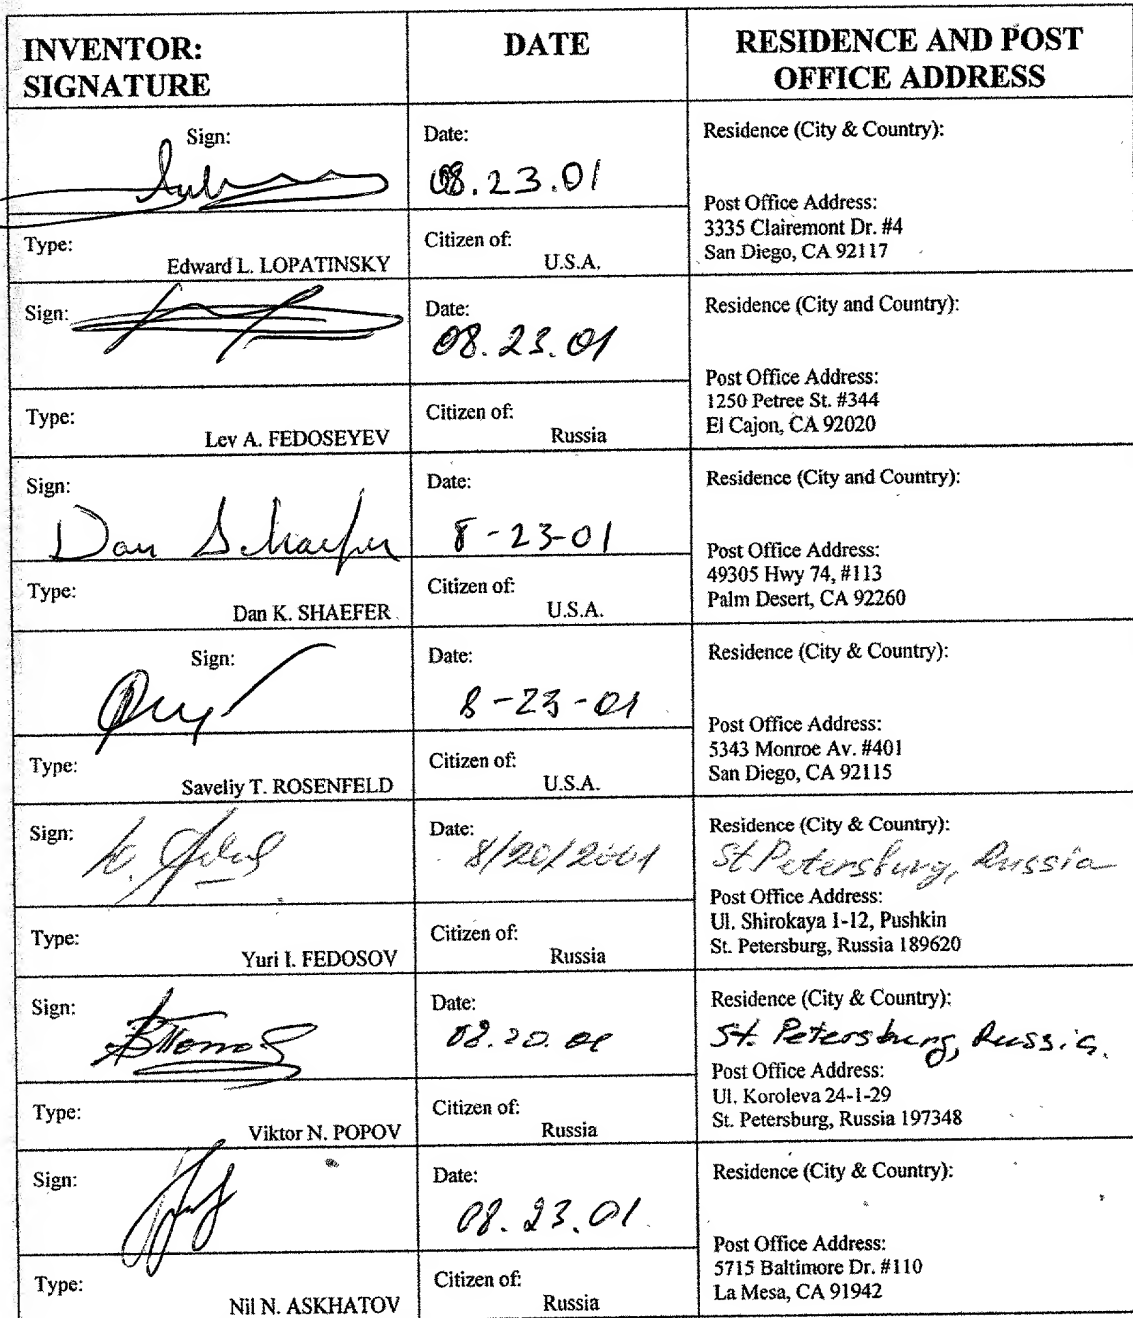 INVENTOR:
SIGNATURE
DATE
RESIDENCE AND POST
OFFICE ADDRESS
Sign:
Date:
08.23.01
Residence (City & Country):
Post Office Address:
3335 Clairemont Dr. #4
San Diego, CA 92117
Type:
Edward L. LOPATINSKY
Citizen of:
U.S.A.
Sign:
Date:
08.23.01
Residence (City and Country):
Post Office Address:
1250 Petree St. #344
El Cajon, CA 92020
Type:
Lev A. FEDOSEYEV
Citizen of:
Russia
Sign:
Dan Schaefer
Date:
8-23-01
Residence (City and Country):
Post Office Address:
49305 Hwy 74, #113
Palm Desert, CA 92260
Type:
Dan K. SHAEFER
Citizen of:
U.S.A.
Sign:
Date:
8-23-01
Residence (City & Country):
Post Office Address:
5343 Monroe Av. #401
San Diego, CA 92115
Type:
Saveliy T. ROSENFELD
Citizen of:
U.S.A.
Sign:
Date:
8/20/2001
Residence (City & Country):
St Petersburg, Russia
Post Office Address:
Ul. Shirokaya 1-12, Pushkin
St. Petersburg, Russia 189620
Type:
Yuri I. FEDOSOV
Citizen of:
Russia
Sign:
Date:
08.20.01
Residence (City & Country):
St. Petersburg, Russia.
Post Office Address:
Ul. Koroleva 24-1-29
St. Petersburg, Russia 197348
Type:
Viktor N. POPOV
Citizen of:
Russia
Sign:
Date:
08.23.01
Residence (City & Country):
Post Office Address:
5715 Baltimore Dr. #110
La Mesa, CA 91942
Type:
Nil N. ASKHATOV
Citizen of:
Russia